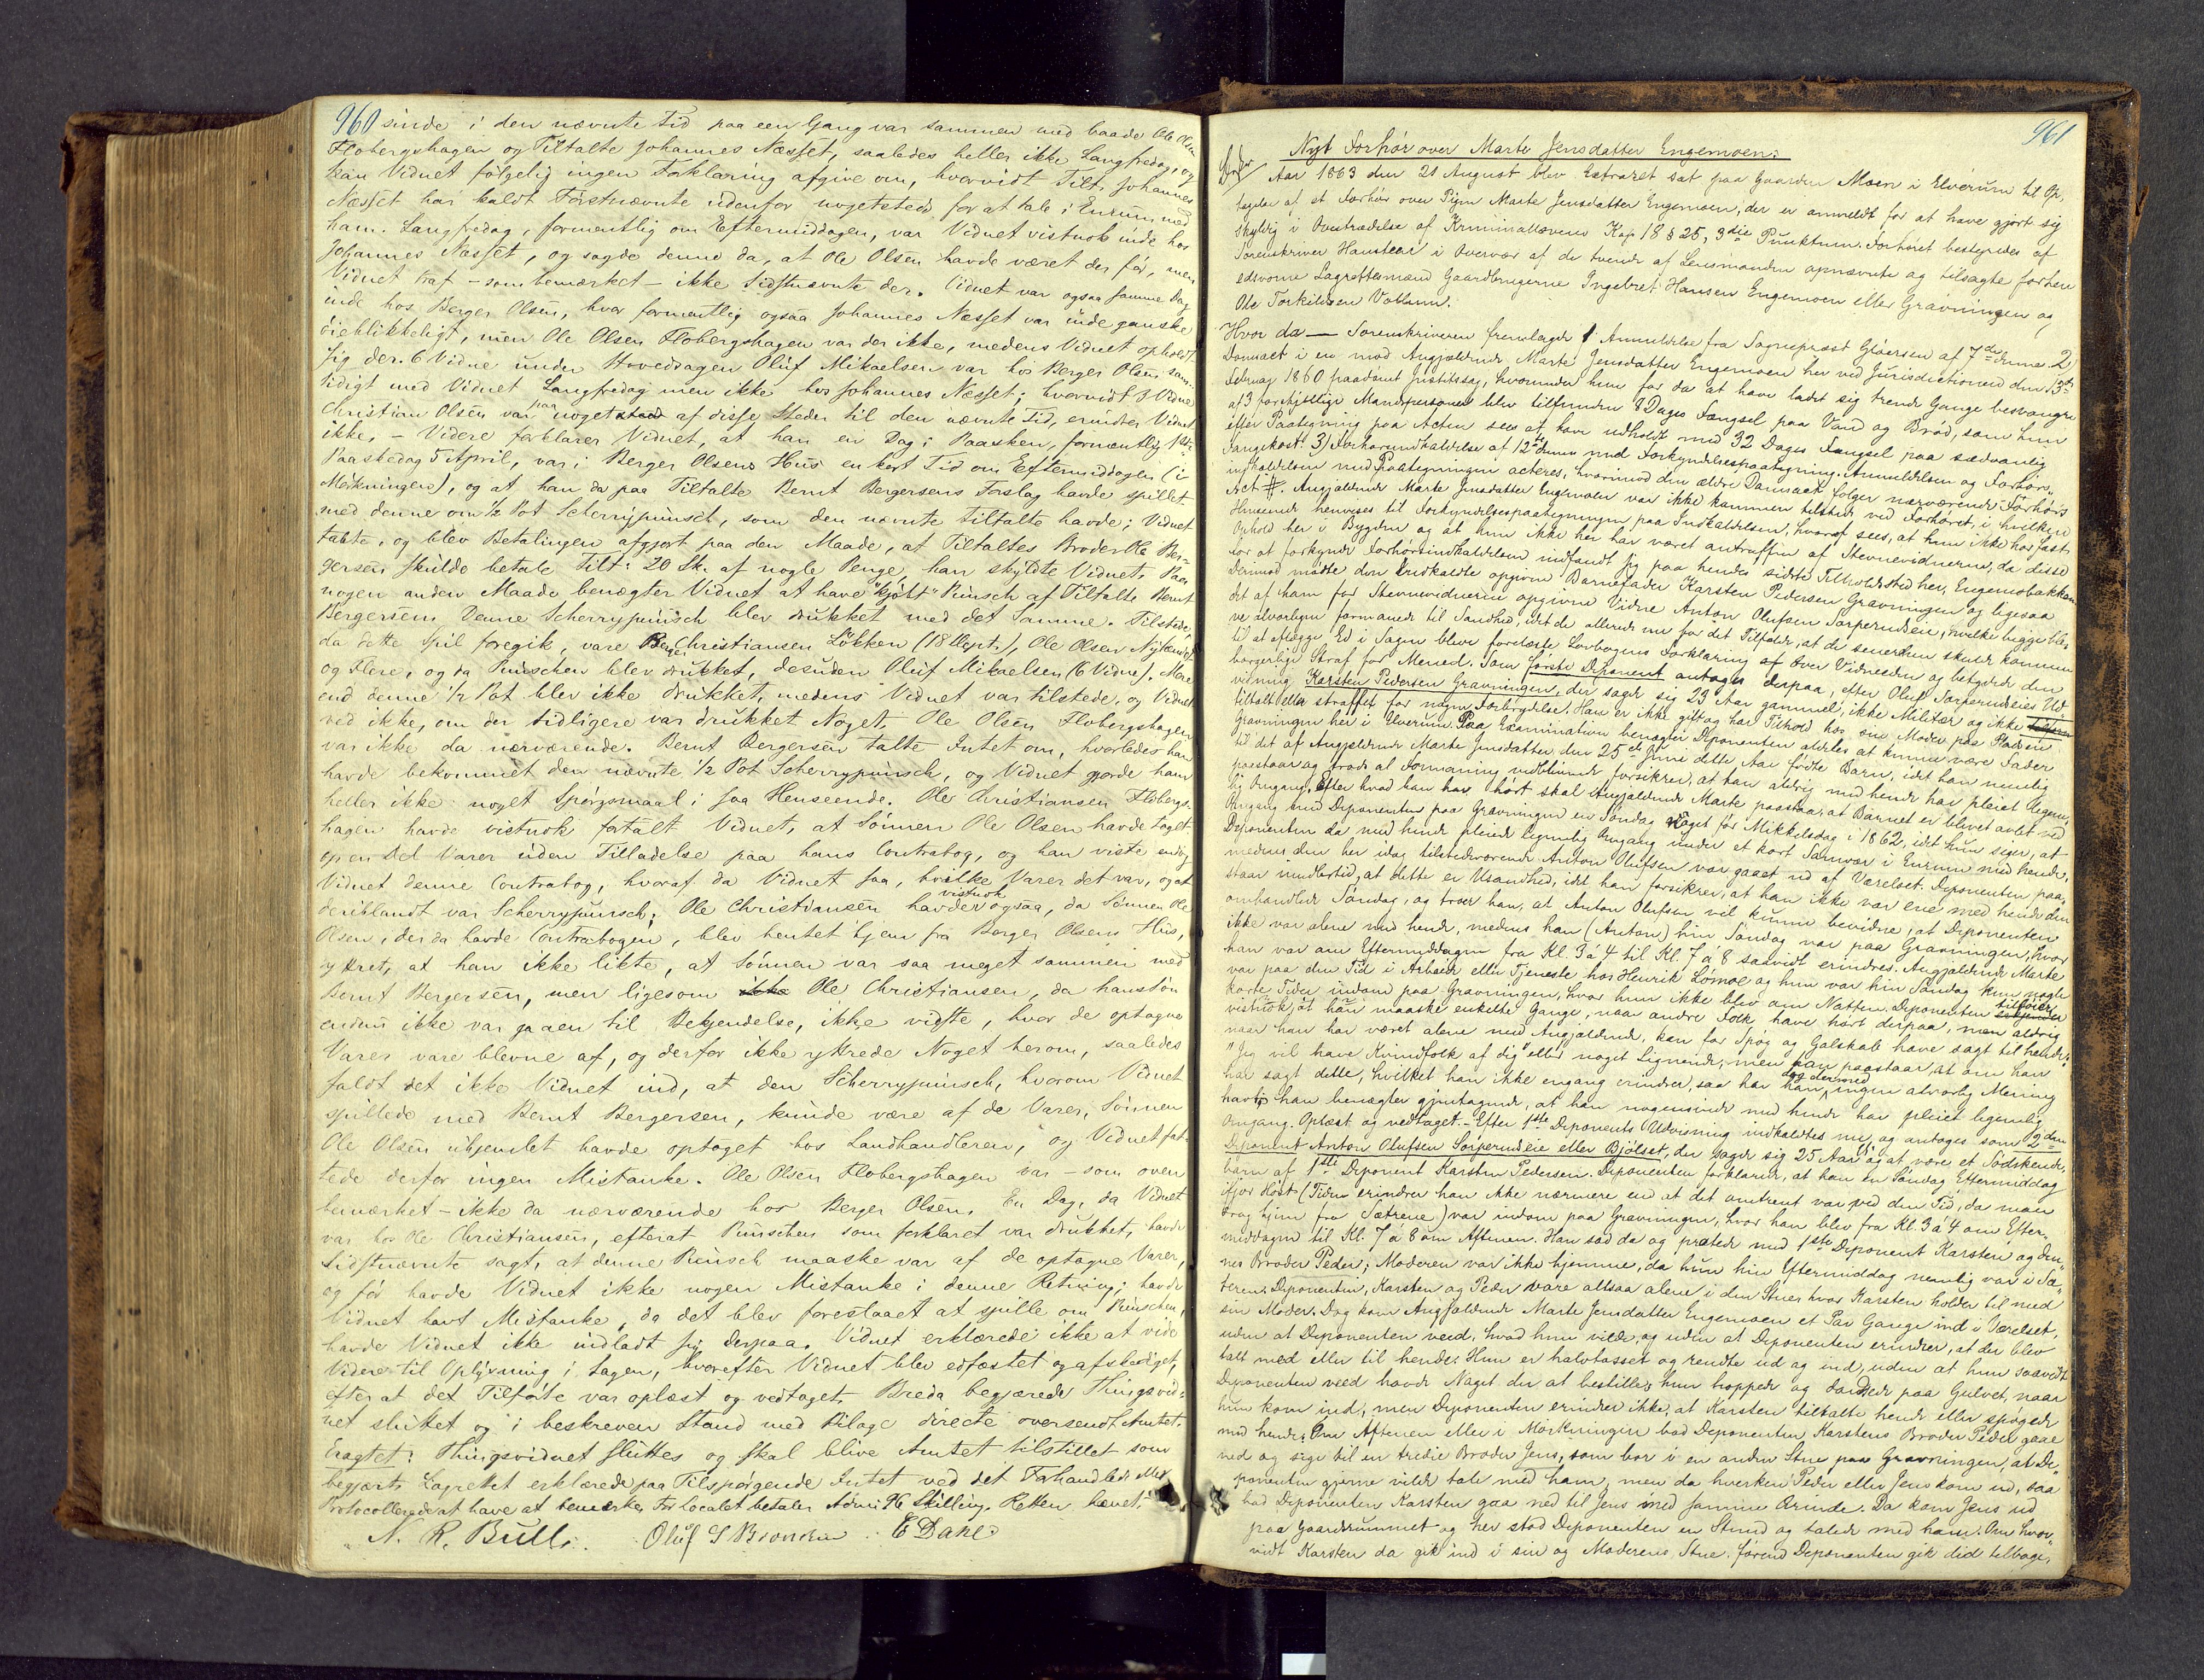 960
sinde i den nævnte Tid paa een Gang var sammen med baade Ole Olsen
Flobergshagen og Tiltalte Johannes Næsset, saaledes heller ikke Langfredag, og
kan Vidnet følgelig ingen Forklaring afgive om, hvorvidt Tilt. Johannes
Næsset har kaldt Førstnævnte udenfor nogetsteds for at tale i Enrum med
ham. Langfredag, formentlig om Eftermiddagen, var Vidnet vistnok inde hos
Johannes Næsset, og sagde denne da, at Ole Olsen havde været der før, men
Vidnet traf – som bemærket – ikke Sidstnævnte der. Vidnet var ogsaa samme Dag
inde hos Berger Olsen, hvor formentlig ogsaa Johannes Næsset var inde ganske
øieblikkeligt, men Ole Olsen Flobergshagen var der ikke, medens Vidnet opholdt
sig der. 6 Vidne under Hoveddagen Oluf Mikaelsen var hos Berger Olsen sam-
tidigt med Vidnet Langfredag men ikke hos Johannes Næsset; hvorvidt 3 Vidne
Christian Olsen var paa noget af disse Steder til den nævnte Tid, erindrer Vidnet
ikke. – Videre forklarer Vidnet, at han en Dag i Paasken, formentlig 1ste
Paaskedag 5 April, var i Berger Olsens Hus en kort Tid om Eftermiddagen (i
Mørkningen), og at han da paa Tiltalte Bernt Bergersens Forslag havde spillet
med denne om ½ Pot Scherrypunsch, som den nævnte Tiltalte havde; Vidnet
tabte, og blev Betalingen afgjort paa den Maade, at Tiltaltes Broder Ole Ber-
gersen skulde betale Tilt. 20 Sk. af nogle Penge, han skyldte Vidnet. Paa
nogen anden Maade benægter Vidnet at have "kjøbt" Punsch af Tiltalte Bernt
Bergersen. Denne Scherrypunsch blev drukket med det Samme. Tilstede,
da dette Spil foregik, vare Christiansen Løkken (18 Dept.), Ole Olsen
og Flere, og da Punschen blev drukket, desuden Oluf Mikaelsen (6 Vidne). Mere
end denne ½ Pot blev ikke drukket, medens Vidnet var tilstede, og Vidnet
ved ikke, om der tidligere var drukket Noget. Ole Olsen Flobergshagen
var ikke da nærværende. Bernt Bergersen talte Intet om, hvorledes han
havde bekommet den nævnte ½ Pot Scherrypunsch, og Vidnet gjorde ham
heller ikke noget Spørgsmaal i saa Henseende. Ole Christiansen Flobergs-
hagen havde vistnok fortalt Vidnet, at Sønnen Ole Olsen havde taget
op en Del Varer uden Tilladelse paa hans Contrabog, og han viste endog
Vidnet denne Contrabog, hvoraf da Vidnet saa, hvilke Varer det var, og at
deriblandt var Scherrypunsch; Ole Christiansen havde vistnok ogsaa, da Sønnen Ole
Olsen, der da havde Contrabogen, blev hentet hjem fra Berger Olsens Hus,
yttret, at han ikke likte, at Sønnen var saa meget sammen med
Bernt Bergersen, men ligesom Ole Christiansen, da hans Søn
endnu ikke var gaaen til Bekjendelse, ikke vidste, hvor de optagne
Varer vare blevne af, og derfor ikke yttrede Noget herom, saaledes
faldt det ikke Vidnet ind, at den Scherrypunsch, hvorom Vidnet
spillede med Bernt Bergersen, kunde være af de Varer, Sønnen
Ole Olsen uhjemlet havde optaget hos Landhandleren, og Vidnet fat-
tede derfor ingen Mistanke. Ole Olsen Flobergshagen var – som oven
bemærket – ikke da nærværende hos Berger Olsen. En Dag, da Vidnet
var hos Ole Christiansen, efterat Punschen som forklaret var drukket, havde
Sidstnævnte sagt, at denne Punsch maaske var af de optagne Varer,
og før havde Vidnet ikke nogen Mistanke i denne Retning; havde
Vidnet havt Mistanke, da det blev foreslaaet at spille om Punschen,
havde Vidnet ikke indladt sig derpaa. Vidnet erklærede ikke at vide
Videre til Oplysning i Sagen, hvorefter Vidnet blev edfæstet og afskediget,
efter at det Tilførte var oplæst og vedtaget. Breda begjærede Thingsvid-
net sluttet og i beskreven Stand med Bilage directe oversendt Amtet.
Eragtet: Thingsvidnet sluttes og skal blive Amtet tilstillet som
begjært. Lagrettet erklærede paa Tilspørgende Intet ved det Forhandlede eller
Protocollerede at have at bemærke. For Localet betales 96 Skilling. Retten hævet.
N. R. Bull. Oluf S E Dahl
961
Nyt Forhør over Marte Jensdatter Engemoen.
Aar 1863 den 21 August blev Extraret sat paa Gaarden Moen i Elverum til Op-
tagelse af et Forhør over Pigen Marte Jensdatter Engemoen, der er anmeldt for at have gjort sig
skyldig i Overtrædelse af Kriminallovens Kap 18 § 25, 3die Punktum. Forhøret bestyredes af
Sorenskriver Hansteen i Overvær af de tvende af Lensmanden opnævnte og tilsagte forhen
edsvorne Lagrettesmænd Gaardbrugerne Ingebret Hansen Engemoen eller Gravningen og
Ole Torkildsen Vollum.
Hvor da — Sorenskriveren fremlagde 1 Anmeldelse fra Sognepræst Gløersen af 7de dennes 2)
Domsact i en mod Angjældende Marte Jensdatter Engemoen her ved Jurisdictionen den 13de
Februar 1860 paadømt Justitssag, hvorunder hun for da at have ladet sig trende Gange besvangre
af 3 forskjellige Mandspersoner blev tilfunden 8 Dages Fængsel paa Vand og Brød, som hun
efter Paategning paa Acten sees at have udholdt med 32 Dages Fængsel paa sædvanlig
Fangekost. 3) Forhørsindkaldelse af 12te dennes med Forkyndelsespaategning. Anmeldelsen og Forhørs-
indkaldelsen med Paategningen acteres, hvorimod den ældre Domsact følger nærværende Forhørs-
Act #. Angjældende Marte Jensdatter Engemoen var ikke kommen tilstede ved Forhøret, i hvilken
Henseende henvises til Forkyndelsespaategningen paa Indkaldelsen, hvoraf sees, at hun ikke har fast
Ophold her i Bygden og at hun ikke her har været antruffen af Stevnevidnerne, da disse
for at forkynde Forhørsindkaldelsen indfandt sig paa hendes sidste Tilholdssted her, Engemobakken.
Derimod mødte den indkaldte opgivne Barnefader Karsten Pedersen Gravningen og ligesaa
det af ham for Stevnevidnerne opgivne Vidne Anton Olufsen Sørperudeie, hvilke begge ble-
ve alvorligen formanede til Sandhed, idet de allerede nu for det Tilfælde, at de senerehen skulde komme
til at aflægge Ed i Sagen bleve forelæste Lovbogens Forklaring af over Vidneeden og betydede den
borgerlige Straf for Meened. Som første Deponent antages derpaa, efter Oluf Sørperudeies Ud-
visning Karsten Pedersen Gravningen, der sagde sig 23 Aar gammel, ikke Militær og ikke
tiltalt eller straffet for nogen Forbrydelse. Han er ikke gift og har Tilhold hos sin Moder paa Pladsen
Gravningen her i Elverum. Paa Examination benægter Deponenten aldeles at kunne være Fader
til det af Angjældende Marte Jensdatter den 25de Juni dette Aar fødte Barn, idet han nemlig
paastaar og trods al Formaning vedblivende forsikrer, at han aldrig med hende har pleiet legem-
lig Omgang. Efter hvad han har hørt skal Angjældende Marte paastaa, at Barnet er blevet avlet ved
Omgang med Deponenten paa Gravningen en Søndag noget før Mikkelsdag i 1862, idet hun siger, at
Deponenten da med hende pleiede legemlig Omgang under et kort Samvær i Enrum med hende,
medens den her idag tilstedeværende Anton Olufsen var gaaet ud af Værelset. Deponenten paa-
staar imidlertid, at dette er Usandhed, idet han forsikrer, at han ikke var ene med hende den
omhandlede Søndag, og troer han, at Anton Olufsen vil kunne bevidne, at Deponenten
ikke var alene med hende, medens han (Anton) hin Søndag var paa Gravningen, hvor
han var om Eftermiddagen fra Kl. 3 á 4 til Kl. 7 á 8 saavidt erindres. Angjældende Marte
var paa den Tid i Arbeide eller Tjeneste hos Henrik Sømoe og hun var hin Søndag kun nogle
korte Tider indom paa Gravningen, hvor hun ikke blev om Natten. Deponenten tilføier
vistnok, at han maaske enkelte Gange, naar andre Folk have hørt derpaa, men aldrig
naar han har været alene med Angjældende, kan for Spøg og Galskab have sagt til hende:
"Jeg vil have Kvindfolk af dig" eller noget Lignende; men han paastaar, at om han
har sagt dette, hvilket han ikke engang erindrer, saa har han dog dermed ingen alvorlig Mening
havt; han benægter gjentagende, at han nogensinde med hende har pleiet legemlig
Omgang. Oplæst og vedtaget. – Efter 1ste Deponents Udvisning indkaldtes nu, og antoges som 2den
Deponent Anton Olufsen Sørperudeie eller Bjølset, der sagde sig 25 Aar og at være et Sødskende-
barn af 1ste Deponent Karsten Pedersen. Deponenten forklarede, at han en Søndag Eftermiddag
ifjor Høst (Tiden erindrer han ikke nærmere end at det omtrent var ved den Tid, da man
drog hjem fra Sætrene) var indom paa Gravningen, hvor han blev fra Kl. 3 á 4 om Efter-
middagen til Kl. 7 á 8 om Aftenen. Han sad da og pratede med 1ste Deponent Karsten og den-
nes Broder Peder; Moderen var ikke hjemme, da hun hin Eftermiddag nemlig var i Sæ-
teren. Deponenten, Karsten og Peder vare altsaa alene i den Stue, hvor Karsten holder til med
sin Moder. Dog kom Angjældende Marte Jensdatter Engemoen et Par Gange ind i Værelset,
uden at Deponenten veed, hvad hun vilde, og uden at Deponenten erindrer, at der blev
talt med eller til hende. Hun er halvtosset og rendte ud og ind, uden at hun saavidt
Deponenten veed havde Noget der at bestille; hun hoppede og dandsede paa Gulvet, naar
hun kom ind, men Deponenten erindrer ikke, at Karsten tiltalte hende eller spøgede
med hende. Om Aftenen eller i Mørkningen bad Deponenten Karstens Broder Peder gaae
ned og sige til en tredie Broder Jens, som bor i en anden Stue paa Gravningen, at De-
ponenten gjerne vilde tale med ham, men da hverken Peder eller Jens kom ud, saa
bad Deponenten Karsten gaa ned til Jens med samme Ærinde. Da kom Jens ud
paa Gaardsrummet og her stod Deponenten en Stund og talede med ham. Om hvor-
vidt Karsten da gik ind i sin og Moderens Stue, førend Deponenten gik did tilbage,